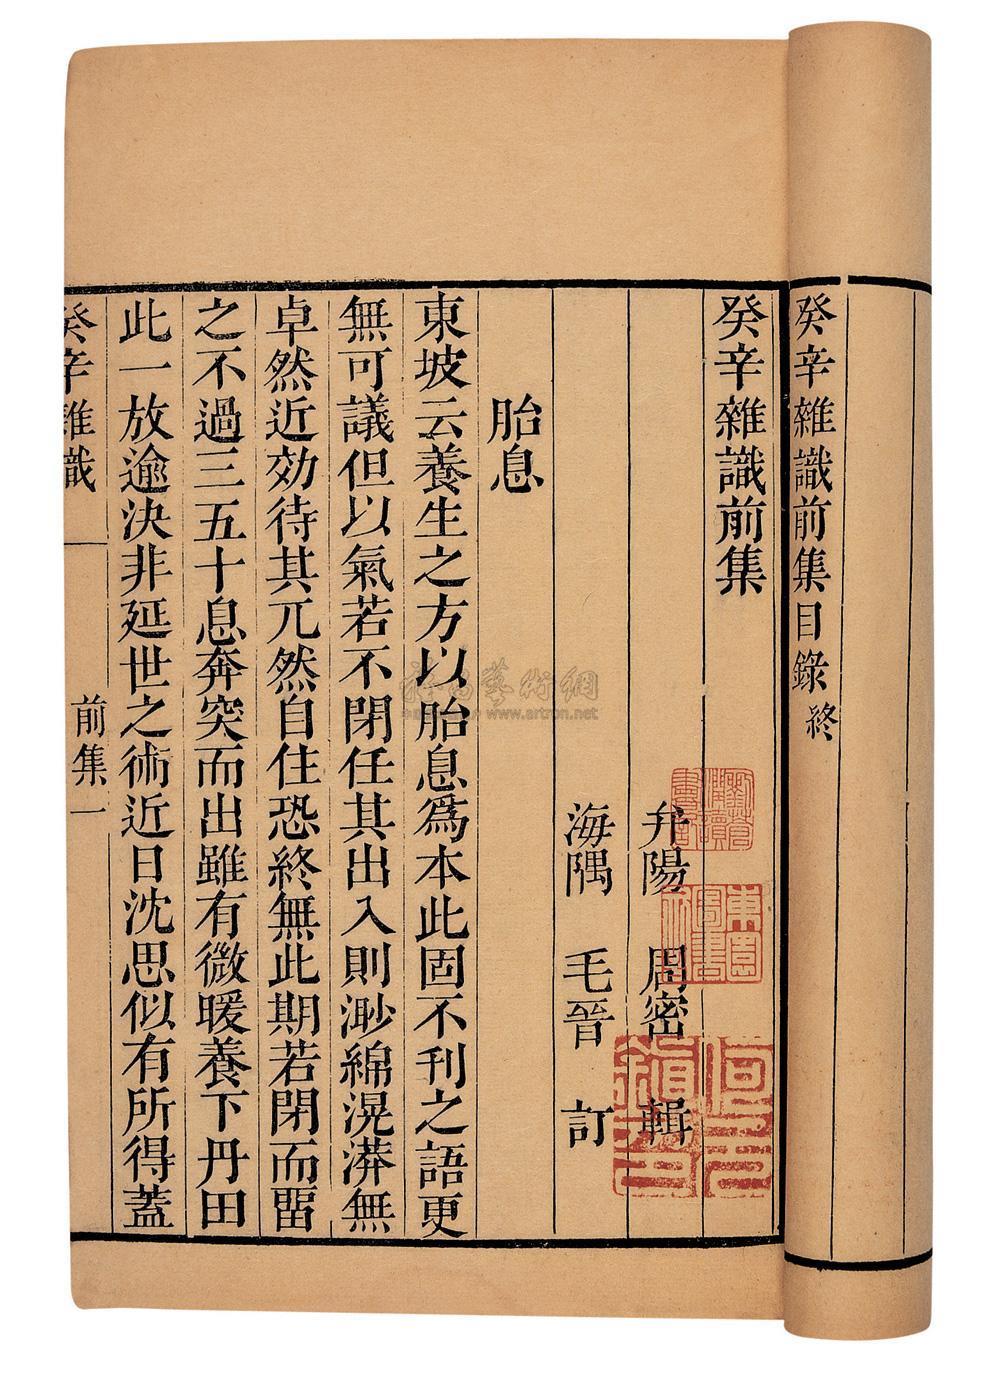 癸辛雜識前集目錄終
癸辛雜識前集
弁陽 周密 輯
海隅 毛晉 訂
胎息
東坡云養生之方以胎息爲本此固不刊之語更
無可議但以氣若不閉任其出入則渺綿滉漭無
卓然近効待其兀然自住恐終無此期若閉而畱
之不過三五十息奔突而出雖有微暖養下丹田
此一放逾決非延世之術近日沈思似有所得蓋
癸辛雜識
前集一
東
圖書
藝術網
www.artron.net